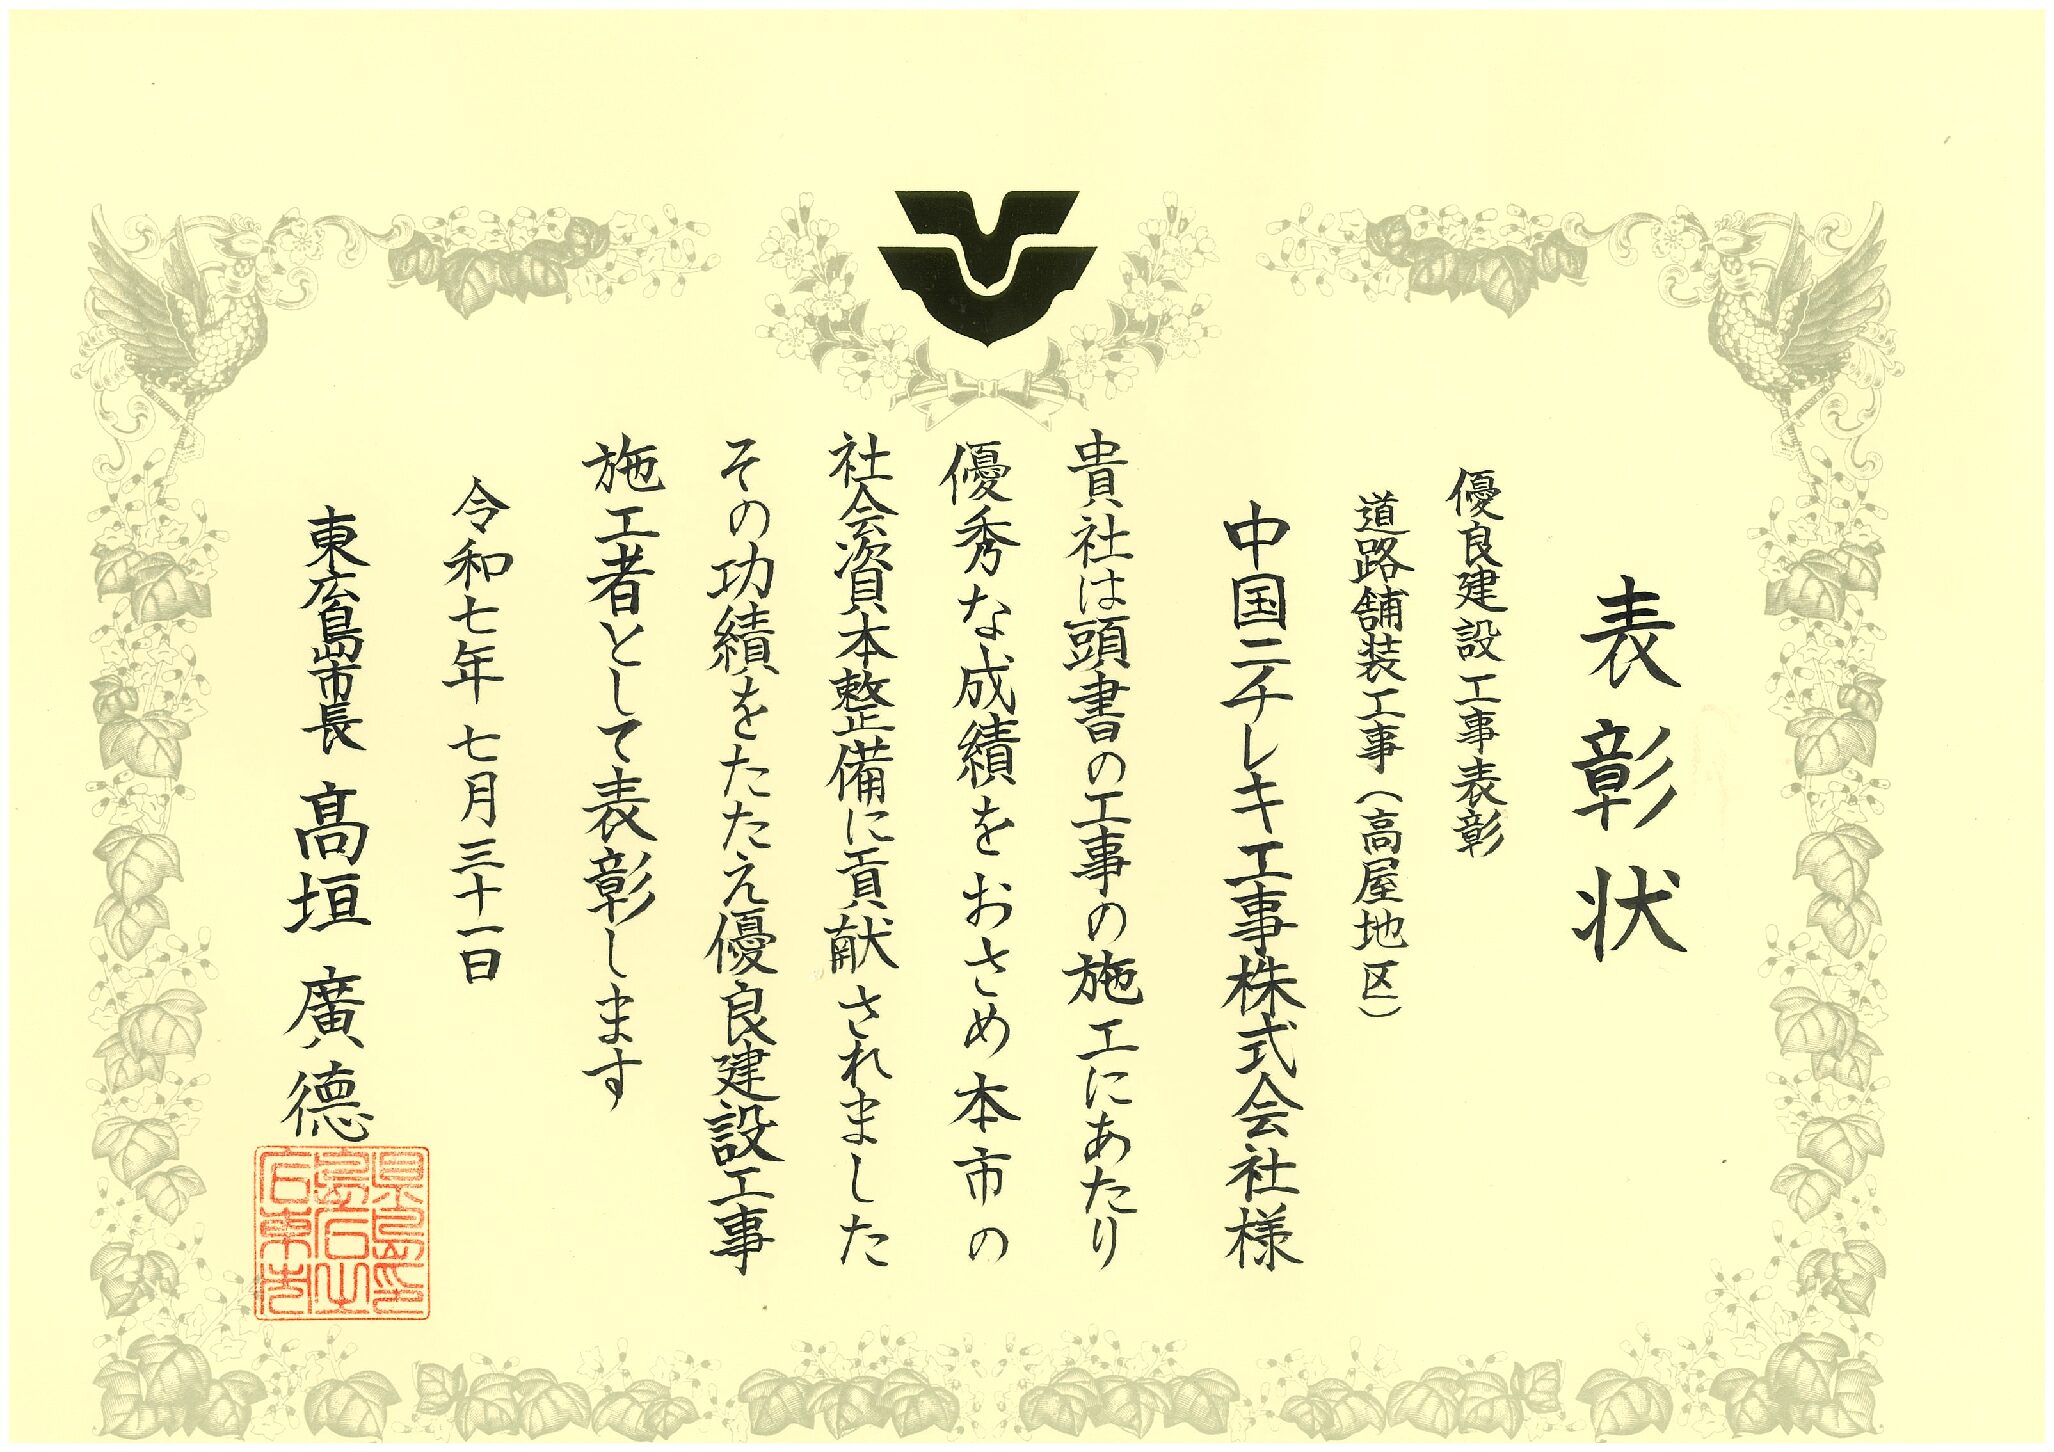 表彰状
優良建設工事表彰
道路舗装工事（高屋地区）
中国ニチレキ工事株式会社様
貴社は頭書の工事の施工にあたり
優秀な成績をおさめ本市の
社会資本整備に貢献されました
その功績をたたえ優良建設工事
施工者として表彰します
令和七年七月三十一日
東広島市長 髙垣廣德